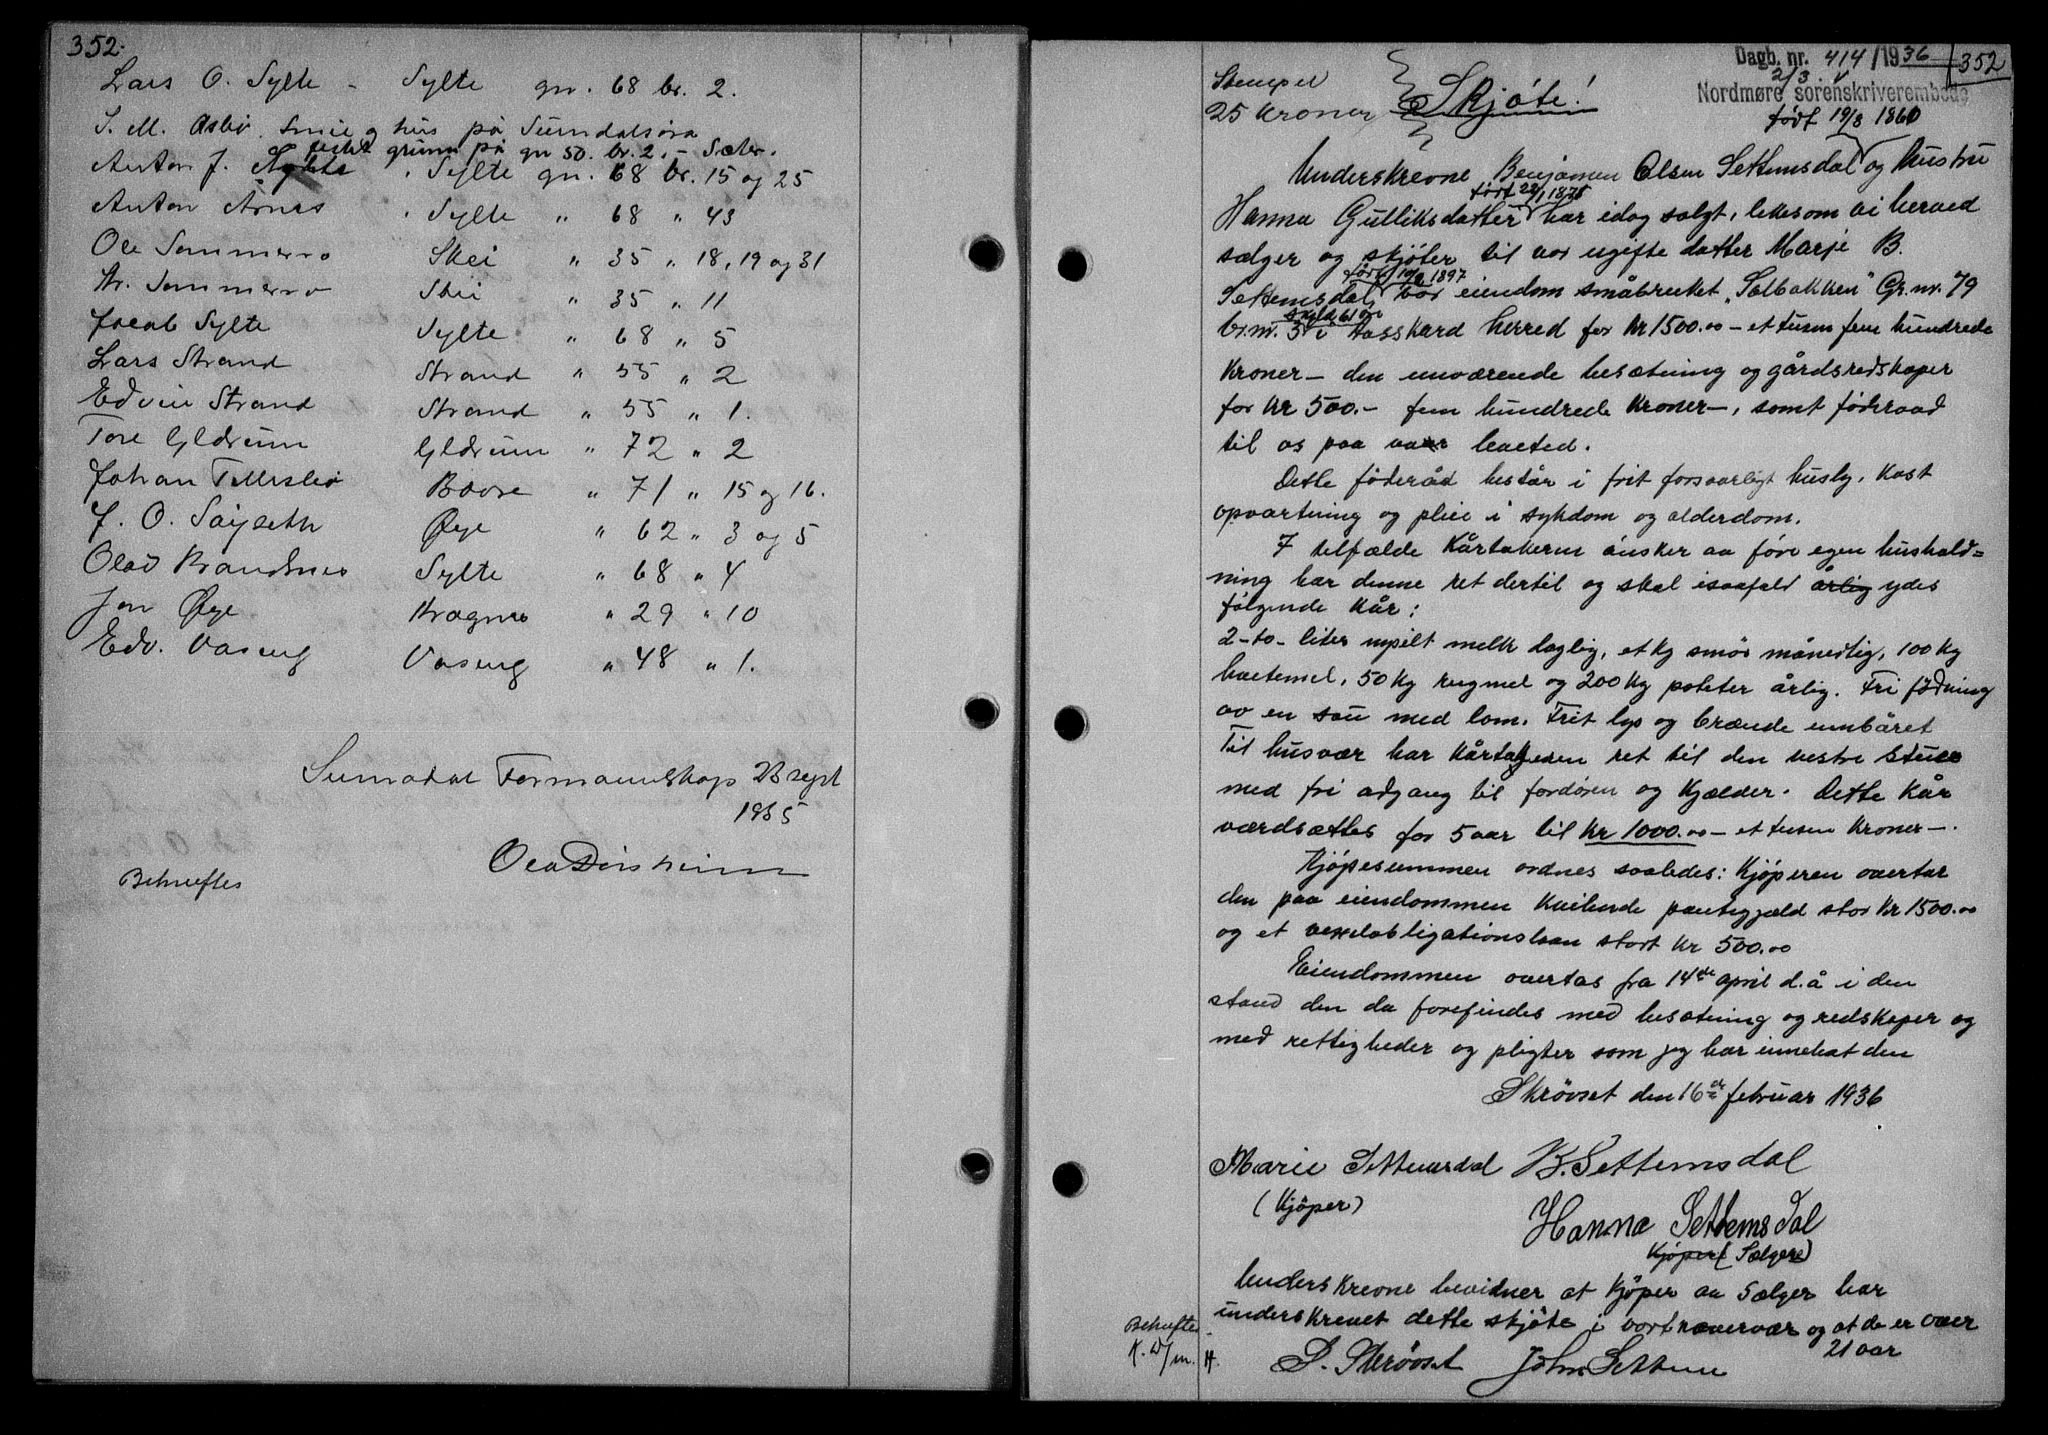 352.
Lars O. Sylte - Sylte gn. 68 br. 2.
S. M. Ørsbø. Smie og hus på Sundalsøra
festet grunn på gn 50. br. 2. - Sæter.
Anton J. Sylte Sylte gn. 68 br. 15 og 25
Anton Årnes Sylte " 68 " 43
Ole Sommerro Skei " 35 " 18, 19 og 31
Kr. Sommerro Skei " 35 " 11
Jacob Sylte Sylte " 68 " 5
Lars Strand Strand " 55 " 2
Edvin Strand Strand " 55 " 1.
Tore Glærum Glærum " 72 " 2
Johan Tellesbø Bøvre " 71 " 15 og 16.
J. O. Saigseth Øye " 62 " 3 og 5
Olav Brandsnes Sylte " 68 " 4
Jon Øye Kragnes " 29 " 10
Edv. Vaseng Vaseng " 48 " 1.
Surnadal Formannskap 23 sept
1935
Ola Dirsheim
Bekreftes
Dagb. nr. 414/1936 352
2/3
Nordmøre sorenskriverembede
Stempel
25 Kroner Skjøte!
født 19/8 1860
Underskrevne Benjamen Olsen Settemsdal og hustru
født 22/1 1875
Hanna Gulliksdatter har idag solgt, likesom vi herved
sælger og skjøter til vor ugifte datter Marie B.
født 10/2 1897
Settemsdal, vor eiendom småbruket "Solbakken" Gr. nr. 79
skyld 61 øre
br. nr. 3 i Aasskard herred for Kr 1500.00 - et tusen fem hundrede
Kroner - den nuværende besætning og gårdsredskaper
for Kr 500.- fem hundrede Kroner -, samt føderaad
til os paa vaar levetid.
Dette føderåd består i frit forsvarligt husly, kost
opvartning og pleie i sykdom og alderdom.
I tilfælde Kårtakerne ønsker aa føre egen hushold=
ning har denne ret dertil og skal isaafald årlig ydes
følgende Kår:
2 - to - liter nysilt melk daglig, et kg smør månedlig, 100 Kg
havremel, 50 Kg rugmel og 200 Kg poteter årlig. Fri födning
av en sau med lam. Frit lys og brænde innbåret
Til husvær har Kårtakeren ret til den vestre stue
med fri adgang til fordören og Kjælder. Dette Kår
værdsættes for 5 aar til Kr 1000.00 - et tusen Kroner -.
Kjøpesummen ordnes saaledes: Kjøperen overtar
den paa eiendommen kvilende pantegjæld stor Kr 1500.00
og et vexelobligationslaan stort Kr 500.00
Eiendommen overtas fra 14de april d.å i den
stand den da forefindes med besætning og redskaper og
med rettigheder og pligter som jeg har innehat den
Skrøvset den 16de februar 1936
Marie Settemsdal B. Settemsdal
(Kjöper) Hanna Settemsdal
Kjöper (Sælgere)
Underskrevne bevidner at Kjøper aa Sælger har
underskrevet dette skjøte i vort nærvær og at de er over
21 aar
S. Skrøvset John Settem
Bekreftes